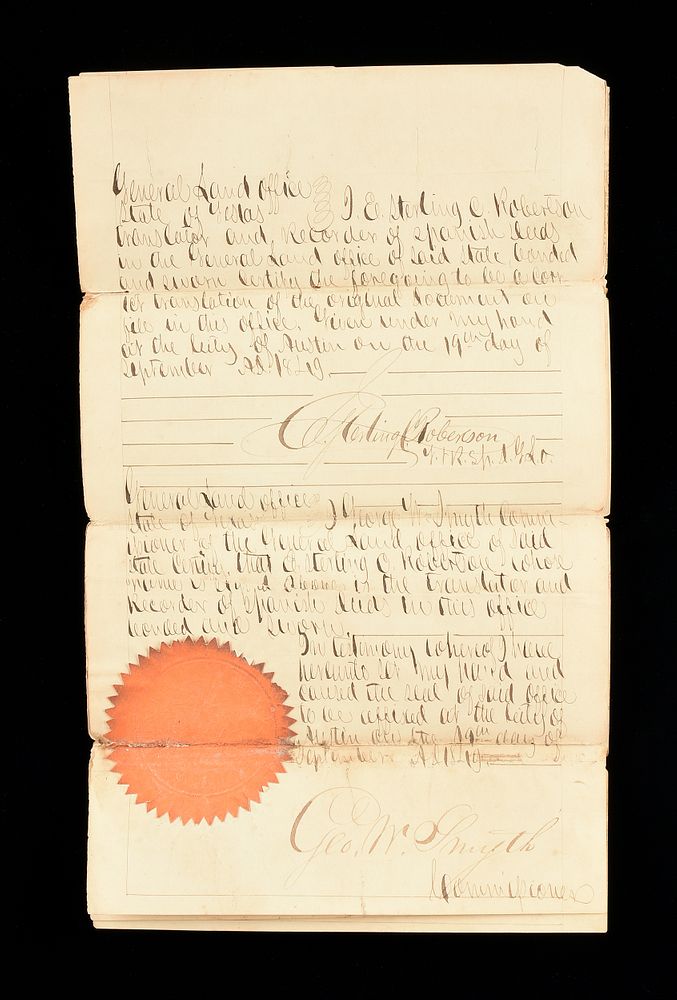 General Land office
State of Texas } I. E. Sterling C. Robertson
translator and Recorder of Spanish Deeds
in the General Land office of said State bonded
and sworn certify the foregoing to be a cor-
rect translation of the original document on
file in this office. Given under my hand
at the City of Austin on the 19th day of
September AD. 1849.
E. Sterling C. Robertson
T. & R. Sp. d. G.L.O.
General Land office
State of Texas } I George W. Smyth Commis-
sioner of the General Land office of said
state certify that E. Sterling C. Robertson whose
name is above is the translator and
Recorder of Spanish Deeds in this office
bonded and sworn.
In testimony whereof I have
hereunto set my hand and
caused the seal of said office
to be affixed at the City of
Austin on the 19th day of
September AD 1849
Geo. W. Smyth
Commissioner